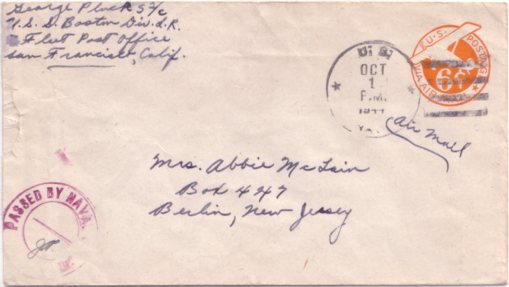 George Pluck S2/c
U.S.S. Boston Div. L.R.
Fleet Post Office
San Francisco, Calif.
U.S.
OCT
1
P.M.
1944
U.S. POSTAGE
VIA AIR
6¢
Air Mail
Mrs. Abbie McLain
Box 447
Berlin, New Jersey
PASSED BY NAVA